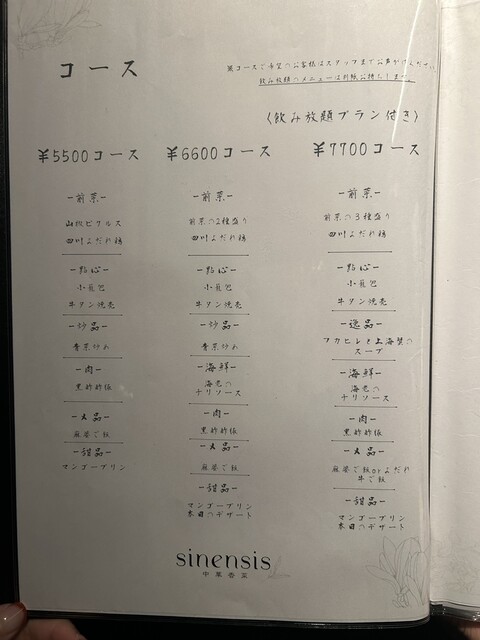 コース
※コースご希望のお客様はスタッフまでお声がけください。
飲み放題のメニューは別紙お持ちします。
〈飲み放題プラン付き〉
¥5500コース
-前菜-
山椒ピクルス
四川よだれ鶏
-點心-
小籠包
牛タン焼売
-炒品-
青菜炒め
-肉-
黒酢酢豚
-大品-
麻婆ご飯
-甜品-
マンゴープリン
¥6600コース
-前菜-
前菜の2種盛り
四川よだれ鶏
-點心-
小籠包
牛タン焼売
-炒品-
青菜炒め
-海鮮-
海老の
チリソース
-肉-
黒酢酢豚
-大品-
麻婆ご飯
-甜品-
マンゴープリン
本日のデザート
¥7700コース
-前菜-
前菜の3種盛り
四川よだれ鶏
-點心-
小籠包
牛タン焼売
-逸品-
フカヒレと上海蟹の
スープ
-海鮮-
海老の
チリソース
-肉-
黒酢酢豚
-大品-
麻婆ご飯orよだれ
牛ご飯
-甜品-
マンゴープリン
本日のデザート
sinensis
中華香菜